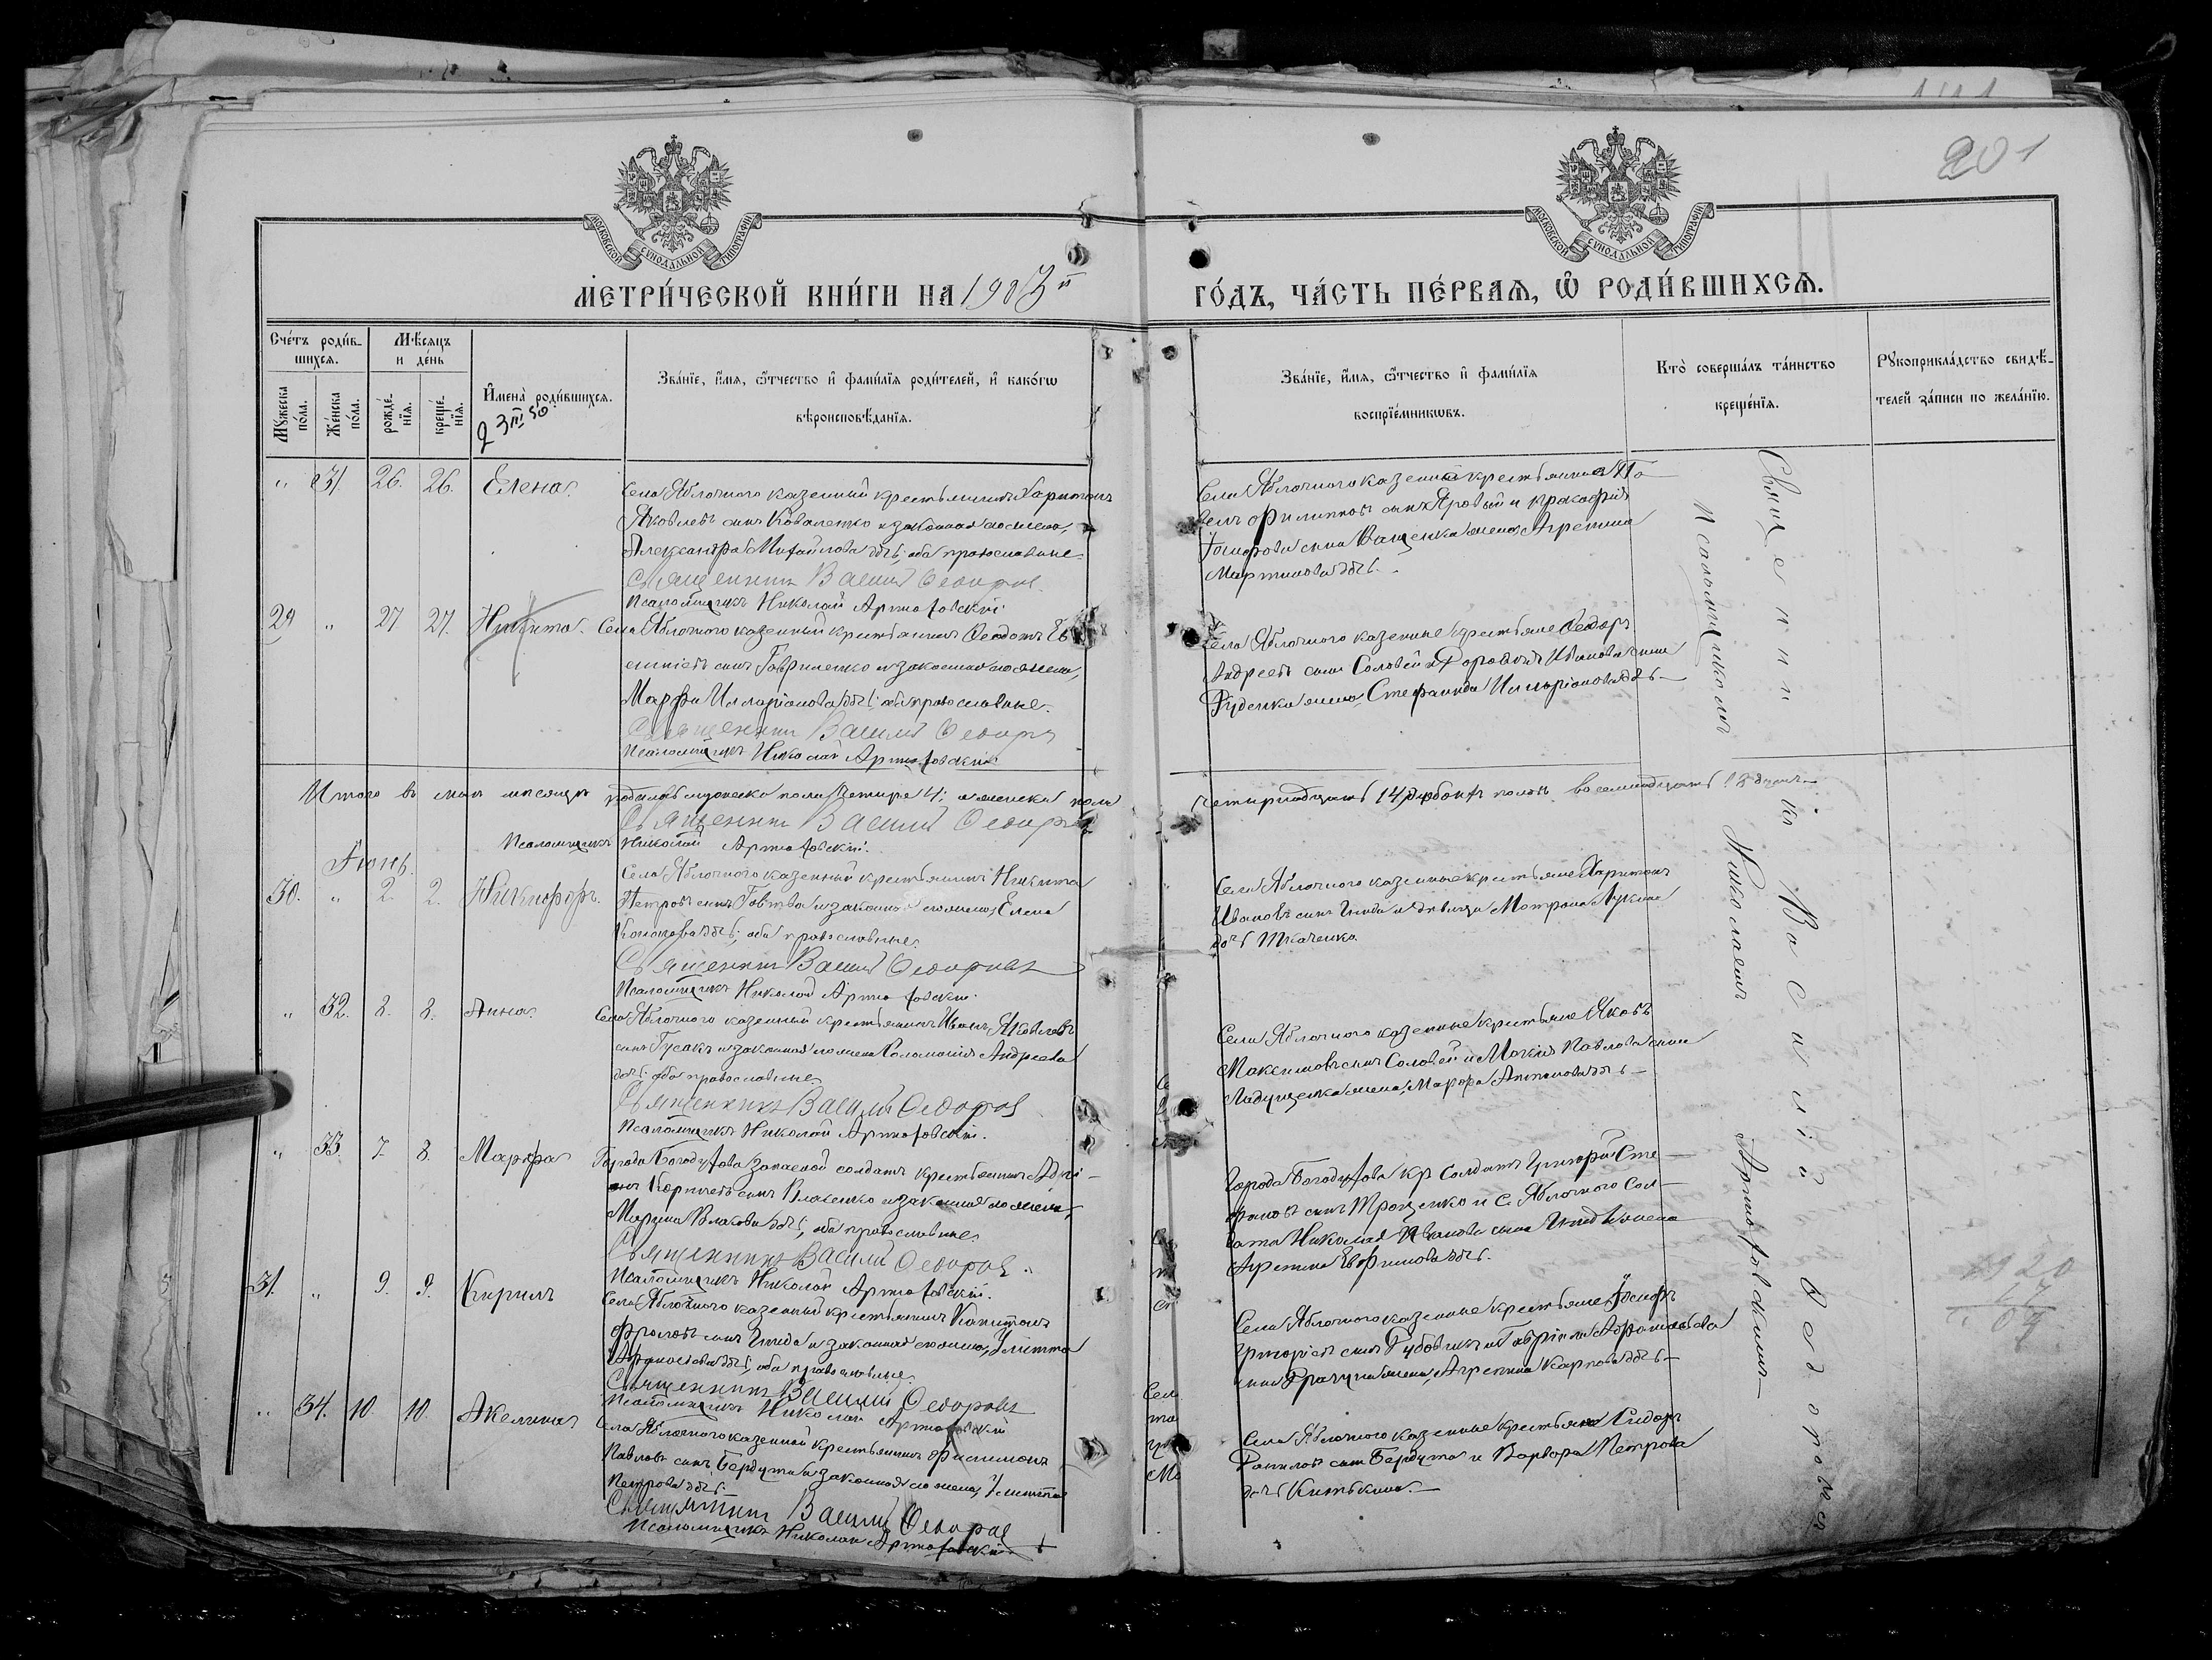 201
МОСКОВСКОЙ СѴНОДАЛЬНОЙ ТИПОГРАФІИ
МОСКОВСКОЙ СѴНОДАЛЬНОЙ ТИПОГРАФІИ
МЕТРИ́ЧЕСКОЙ КНИ́ГИ НА 1903й
ГО́ДЪ, ЧА́СТЬ ПЕ́РВАѦ, Ѽ РОДИ́ВШИХСѦ.
Сче́тъ роди́вшихсѧ.
Мꙋжеска по́ла.
Же́нска по́ла.
Мѣ́сяцъ и де́нь
рожде́нїѧ.
креще́нїѧ.
И҆мена̀ роди́вшихсѧ.
Зва́нїе, и҆́мѧ, ѻ҆́тчество и҆ фами́лїѧ роди́телей, и҆ како́гѡ вѣроисповѣ́данїѧ.
Зва́нїе, и҆́мѧ, ѻ҆́тчество и҆ фами́лїѧ воспрїе́мникѡвъ.
Кто̀ соверша́лъ та́инство креще́нїѧ.
Рꙋкоприкла́дство свидѣ́телей за́писи по жела́нїю.
" 31. 26. 26. Елена.
Села Яблочного казенный крестьянинъ Харитонъ
Яковлевъ сынъ Коваленко и законная его жена,
Александра Михайлова дочь; оба православные.
Священникъ Василій Ѳедоровъ
Псаломщикъ Николай Артюховскій.
Села Яблочного казенные крестьяне
Филиповъ сынъ Яровый и
сына Ващенка жена, Агрепина
Мартинова дочь.
29 " 27 27. Никита.
Села Яблочного казенный крестьянинъ Ѳеодотъ
сынъ Гавриленко и законная его жена,
Марфа Илларіонова дочь; оба православные.
Священникъ Василій Ѳедоровъ
Псаломщикъ Николай Артюховскій
Села Яблочного казенные крестьяне Ѳедоръ
Андреевъ сынъ Соловей и Иванова сына
Руденка жена, Стефанида Илларіонова дочь
Итого въ маѣ мѣсяцѣ родилось мужеска пола четыре 4; а женска пола
четырнадцать 14, а обоихъ половъ восемнадцать 18 душъ.
Священникъ Василій Ѳедоровъ
Псаломщикъ Николай Артюховскій.
Іюнь.
30. " 2. 2. Никифоръ.
Села Яблочного казенный крестьянинъ Никита
Петровъ сынъ Говтва и законная его жена, Елена
дочь; оба православные.
Священникъ Василій Ѳедоровъ
Псаломщикъ Николай Артюховскій.
Села Яблочного казенные крестьяне Харитонъ
Ивановъ сынъ Гнида и девица Матрона Лукина
дочь Ткаченко.
" 32. 8. 8. Анна.
Села Яблочного казенный крестьянинъ Иванъ Яковлевъ
сынъ Гусакъ и законная его жена Соломонія Андреева
дочь; оба православные.
Священникъ Василій Ѳедоровъ
Псаломщикъ Николай Артюховскій.
Села Яблочного казенные крестьяне Яковъ
Максимовъ сынъ Соловей и Мокія Павлова сына
жена, Марфа Антонова дочь
" 33. 7. 8. Марфа
Города Богодухова запасной солдатъ крестьянинъ
сынъ Власенко и законная его жена,
Марина Власова дочь; оба православные.
Священникъ Василій Ѳедоровъ.
Псаломщикъ Николай Артюховскій.
Города Богодухова кр. солдатъ Григорій
сынъ Троценко и с. Яблочного солдата
Николая Иванова сына Гниды жена
Евфимова дочь.
31. " 9. 9. Кирилъ
Села Яблочного казенный крестьянинъ Капитонъ
Фроловъ сынъ Гнида и законная его жена, Улитта
дочь, оба православные.
Священникъ Василій Ѳедоровъ
Псаломщикъ Николай Артюховскій
Села Яблочного казенные крестьяне, Іосифъ
Григорьевъ сынъ и Гавріила
сына жена, Агрепина Карпова дочь
" 34. 10. 10. Акелина
Села Яблочного казенный крестьянинъ Филимонъ
Павловъ сынъ Бердута и законная его жена, Улитта
Петрова дочь.
Священникъ Василій Ѳедоровъ
Псаломщикъ Николай Артюховскій
Села Яблочного казенные крестьяне Сидоръ
Даниловъ сынъ Бердута и Варвара Петрова
дочь
Священникъ Василій Ѳедоровъ
Псаломщикомъ Николаемъ Артюховскимъ